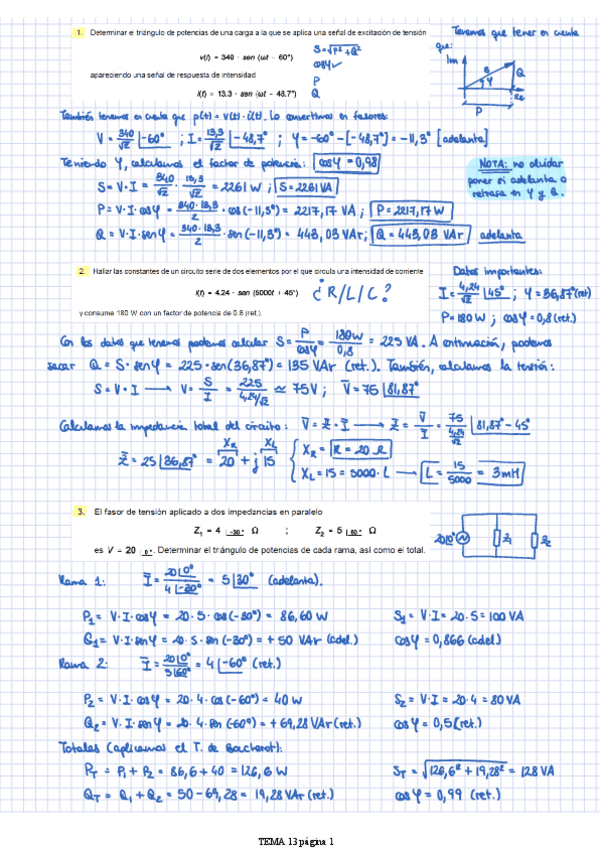 1. Determinar el triángulo de potencias de una carga a la que se aplica una señal de excitación de tensión
v(t) = 340 · sen (ωt - 60°)
apareciendo una señal de respuesta de intensidad
i(t) = 13.3 · sen (ωt - 48.7°)
S=√P²+Q²
cosφ✓
P
Q
Tenemos que tener en cuenta
que:
Im
S
Q
φ
Re
P
También tenemos en cuenta que p(t) = v(t) · i(t). Lo convertimos en fasores:
V = 340/√2 |-60° ; I = 13,3/√2 |-48,7° ; φ = -60° - [-48,7°] = -11,3° [adelanta]
Teniendo φ, calculamos el factor de potencia: cosφ = 0,98
S = V · I = 340/√2 · 13,3/√2 = 2261 W ; S = 2261 VA
P = V · I · cosφ = 340·13,3/2 · cos(-11,3°) = 2217,17 VA ; P = 2217,17 W
Q = V · I · senφ = 340·13,3/2 · sen(-11,3°) = 443,03 VAr ; Q = 443,03 VAr adelanta
NOTA: no olvidar
poner si adelanta o
retrasa en φ y Q.
2. Hallar las constantes de un circuito serie de dos elementos por el que circula una intensidad de corriente
i(t) = 4.24 · sen (5000t + 45°)
¿R/L/C?
y consume 180 W con un factor de potencia de 0.8 (ret.).
Datos importantes:
I = 4,24/√2 |45° ; φ = 36,87° (ret)
P = 180 W ; cosφ = 0,8 (ret)
Con los datos que tenemos podemos calcular S = P/cosφ = 180W/0,8 = 225 VA. A continuación, podemos
sacar Q = S · senφ = 225 · sen(36,87°) = 135 VAr (ret.). También, calculamos la tensión:
S = V · I → V = S/I = 225/4,24/√2 ≃ 75V ; V̄ = 75 |81,87°
Calculamos la impedancia total del circuito: V̄ = Z̄ · Ī → Z̄ = V̄/Ī = 75/4,24/√2 |81,87° - 45°
Z̄ = 25 |36,87° = 20 + j 15
X_R
X_L
X_R = R = 20 Ω
X_L = 15 = 5000 · L → L = 15/5000 = 3mH
3. El fasor de tensión aplicado a dos impedancias en paralelo
Z₁ = 4 |-30° Ω ; Z₂ = 5 |60° Ω
es V = 20 |0°. Determinar el triángulo de potencias de cada rama, así como el total.
20|0°
Z̄₁
Z̄₂
Rama 1: Ī = 20|0°/4|-30° = 5 |30° (adelanta).
P₁ = V · I · cosφ = 20 · 5 · cos(-30°) = 86,60 W
S₁ = V · I = 20 · 5 = 100 VA
Q₁ = V · I · senφ = 20 · 5 · sen (-30°) = + 50 VAr (adel.)
cosφ = 0,866 (adel)
Rama 2: Ī = 20|0°/5|60° = 4 |-60° (ret.)
P₂ = V · I · cosφ = 20 · 4 · cos (-60°) = 40 W
S₂ = V · I = 20 · 4 = 80 VA
Q₂ = V · I · senφ = 20 · 4 · sen (-60°) = + 69,28 VAr (ret.)
cosφ = 0,5 (ret.)
Totales (aplicamos el T. de Bucherot):
P_T = P₁ + P₂ = 86,6 + 40 = 126,6 W
S_T = √126,6² + 19,28² = 128 VA
Q_T = Q₁ + Q₂ = 50 - 69,28 = 19,28 VAr (ret.)
cosφ = 0,99 (ret.)
TEMA 13 página 1